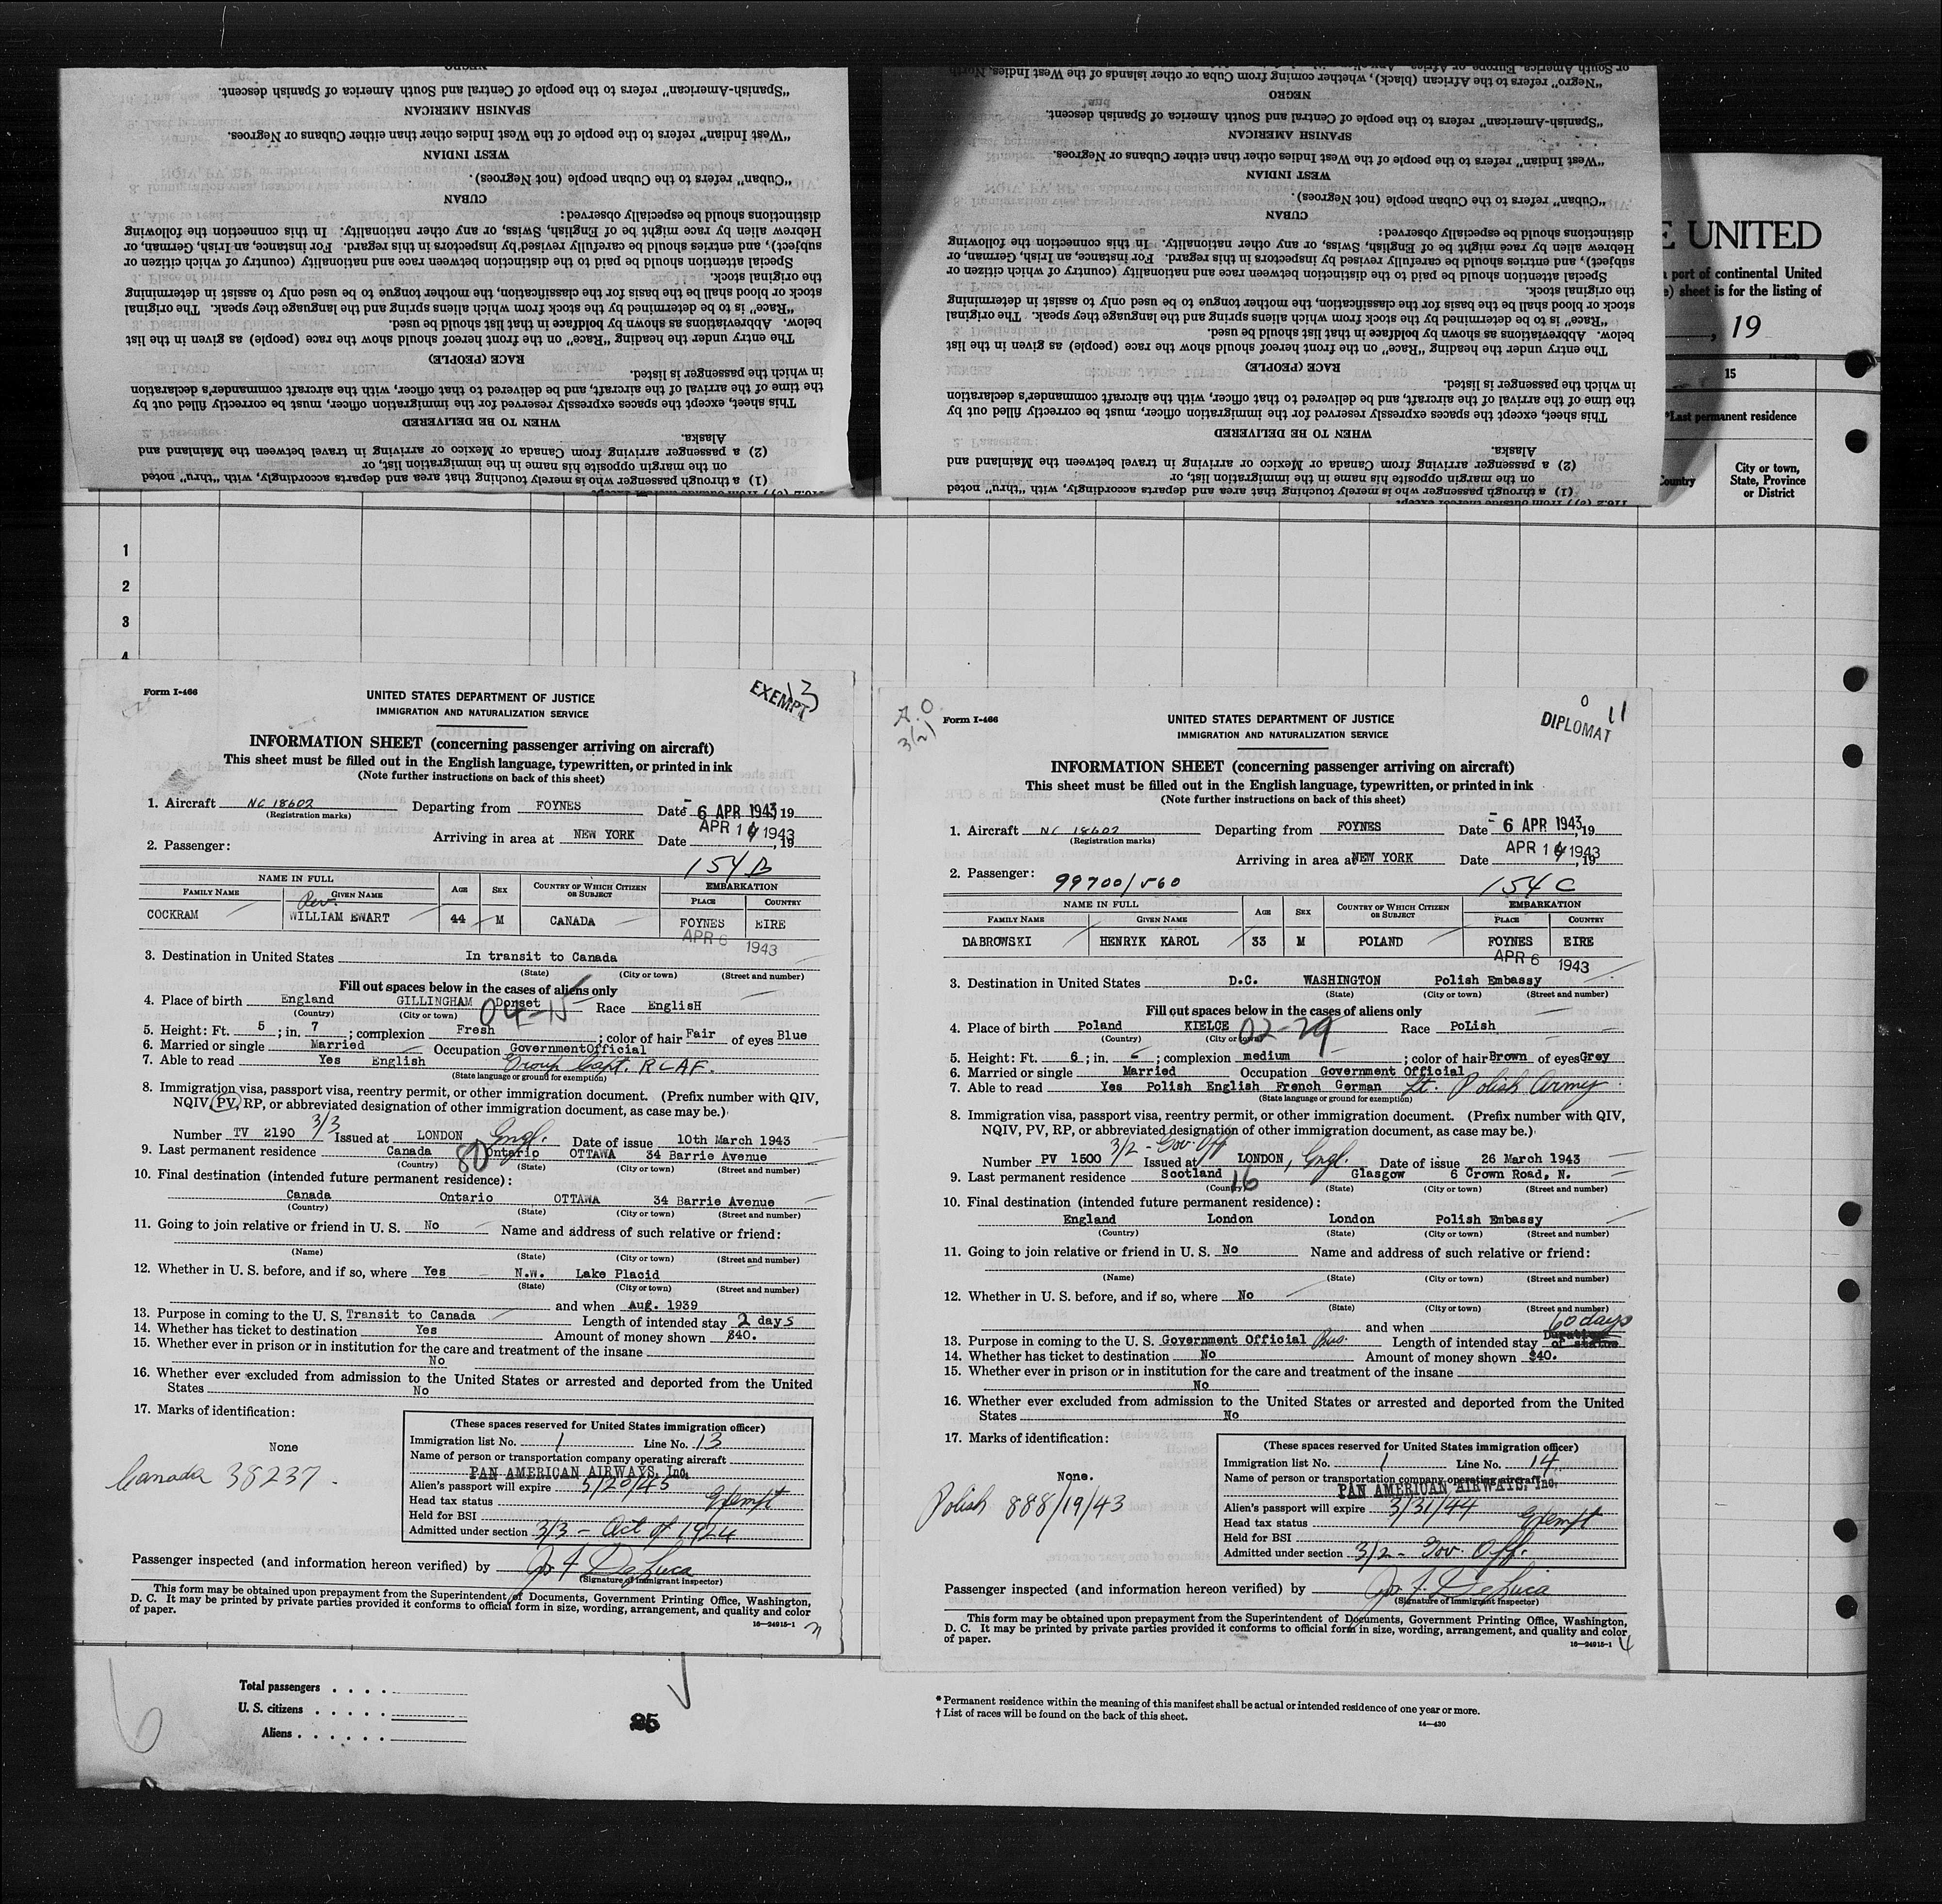 "Spanish-American" refers to the people of Central and South America of Spanish descent.
SPANISH AMERICAN
"West Indian" refers to the people of the West Indies other than either Cubans or Negroes.
WEST INDIAN
"Cuban" refers to the Cuban people (not Negroes).
CUBAN
distinctions should be especially observed:
Hebrew alien by race might be of English, Swiss, or any other nationality. In this connection the following
subject), and entries should be carefully revised by inspectors in this regard. For instance, an Irish, German, or
Special attention should be paid to the distinction between race and nationality (country of which citizen or
the original stock.
stock or blood shall be the basis for the classification, the mother tongue to be used only to assist in determining
"Race" is to be determined by the stock from which aliens spring and the language they speak. The original
below. Abbreviations as shown by boldface in that list should be used.
The entry under the heading "Race" on the front hereof should show the race (people) as given in the list
RACE (PEOPLE)
in which the passenger is listed.
the time of the arrival of the aircraft, and be delivered to that officer, with the aircraft commander's declaration
This sheet, except the spaces expressly reserved for the immigration officer, must be correctly filled out by
WHEN TO BE DELIVERED
Alaska.
(2) a passenger arriving from Canada or Mexico or arriving in travel between the Mainland and
on the margin opposite his name in the immigration list, or
(1) a through passenger who is merely touching that area and departs accordingly, with "thru" noted
"Negro" refers to the African (black), whether coming from Cuba or other islands of the West Indies, North
NEGRO
"Spanish-American" refers to the people of Central and South America of Spanish descent.
SPANISH AMERICAN
"West Indian" refers to the people of the West Indies other than either Cubans or Negroes.
WEST INDIAN
"Cuban" refers to the Cuban people (not Negroes).
CUBAN
distinctions should be especially observed:
Hebrew alien by race might be of English, Swiss, or any other nationality. In this connection the following
subject), and entries should be carefully revised by inspectors in this regard. For instance, an Irish, German, or
Special attention should be paid to the distinction between race and nationality (country of which citizen or
the original stock.
stock or blood shall be the basis for the classification, the mother tongue to be used only to assist in determining
"Race" is to be determined by the stock from which aliens spring and the language they speak. The original
below. Abbreviations as shown by boldface in that list should be used.
The entry under the heading "Race" on the front hereof should show the race (people) as given in the list
RACE (PEOPLE)
in which the passenger is listed.
the time of the arrival of the aircraft, and be delivered to that officer, with the aircraft commander's declaration
This sheet, except the spaces expressly reserved for the immigration officer, must be correctly filled out by
WHEN TO BE DELIVERED
Alaska.
(2) a passenger arriving from Canada or Mexico or arriving in travel between the Mainland and
on the margin opposite his name in the immigration list, or
(1) a through passenger who is merely touching that area and departs accordingly, with "thru" noted
E UNITED
port of continental United
sheet is for the listing of
, 19
15
*Last permanent residence
Country
City or town,
State, Province
or District
1
2
3
4
Form I-466
EXEMPT 13
UNITED STATES DEPARTMENT OF JUSTICE
IMMIGRATION AND NATURALIZATION SERVICE
INFORMATION SHEET (concerning passenger arriving on aircraft)
This sheet must be filled out in the English language, typewritten, or printed in ink
(Note further instructions on back of this sheet)
1. Aircraft NC 18602 Departing from FOYNES Date 6 APR 1943, 19
(Registration marks)
Arriving in area at NEW YORK Date APR 14 1943, 19
2. Passenger:
154 B
NAME IN FULL
FAMILY NAME GIVEN NAME AGE SEX COUNTRY OF WHICH CITIZEN OR SUBJECT EMBARKATION PLACE COUNTRY
COCKRAM WILLIAM EWART 44 M CANADA FOYNES EIRE
APR 6 1943
3. Destination in United States In transit to Canada
(State) (City or town) (Street and number)
Fill out spaces below in the cases of aliens only
4. Place of birth England GILLINGHAM Dorset 04-15 Race EnglisH
(Country) (City or town)
5. Height: Ft. 5; in. 7; complexion Fresh; color of hair Fair of eyes Blue
6. Married or single Married Occupation GovernmentOfficial
7. Able to read Yes English Group Capt. RCAF.
(State language or ground for exemption)
8. Immigration visa, passport visa, reentry permit, or other immigration document. (Prefix number with QIV,
NQIV, PV, RP, or abbreviated designation of other immigration document, as case may be.)
Number TV 2190 3/3 Issued at LONDON Engl. Date of issue 10th March 1943
9. Last permanent residence Canada 80 Ontario OTTAWA 34 Barrie Avenue
(Country) (State) (City or town) (Street and number)
10. Final destination (intended future permanent residence):
Canada Ontario OTTAWA 34 Barrie Avenue
(Country) (State) (City or town) (Street and number)
11. Going to join relative or friend in U. S. No Name and address of such relative or friend:
(Name) (State) (City or town) (Street and number)
12. Whether in U. S. before, and if so, where Yes N.W. Lake Placid
(State) (City or town) (Street and number)
and when Aug. 1939
13. Purpose in coming to the U. S. Transit to Canada Length of intended stay 2 days
14. Whether has ticket to destination Yes Amount of money shown $40.
15. Whether ever in prison or in institution for the care and treatment of the insane
No
16. Whether ever excluded from admission to the United States or arrested and deported from the United
States No
17. Marks of identification:
None
Canada 38237.
(These spaces reserved for United States immigration officer)
Immigration list No. 1 Line No. 13
Name of person or transportation company operating aircraft
PAN AMERICAN AIRWAYS, Inc.
Alien's passport will expire 5/20/45
Head tax status Exempt
Held for BSI
Admitted under section 3/3 - Act of 1924
Passenger inspected (and information hereon verified) by Jos F DeLuca
(Signature of immigrant inspector)
This form may be obtained upon prepayment from the Superintendent of Documents, Government Printing Office, Washington,
D. C. It may be printed by private parties provided it conforms to official form in size, wording, arrangement, and quality and color
of paper.
16—24915-1
Form I-466
DIPLOMAT 11
UNITED STATES DEPARTMENT OF JUSTICE
IMMIGRATION AND NATURALIZATION SERVICE
INFORMATION SHEET (concerning passenger arriving on aircraft)
This sheet must be filled out in the English language, typewritten, or printed in ink
(Note further instructions on back of this sheet)
1. Aircraft NC 18602 Departing from FOYNES Date 6 APR 1943, 19
(Registration marks)
Arriving in area at NEW YORK Date APR 14 1943, 19
2. Passenger: 99700/560
154 C
NAME IN FULL
FAMILY NAME GIVEN NAME AGE SEX COUNTRY OF WHICH CITIZEN OR SUBJECT EMBARKATION PLACE COUNTRY
DABROWSKI HENRYK KAROL 33 M POLAND FOYNES EIRE
APR 6 1943
3. Destination in United States D.C. WASHINGTON Polish Embassy
(State) (City or town) (Street and number)
Fill out spaces below in the cases of aliens only
4. Place of birth Poland KIELCE 02-29 Race PoLish
(Country) (City or town)
5. Height: Ft. 6; in. ; complexion medium; color of hair Brown of eyes Grey
6. Married or single Married Occupation Government Official
7. Able to read Yes Polish English French German Lt. Polish Army
(State language or ground for exemption)
8. Immigration visa, passport visa, reentry permit, or other immigration document. (Prefix number with QIV,
NQIV, PV, RP, or abbreviated designation of other immigration document, as case may be.)
Number PV 1500 3/2 - Gov. Off Issued at LONDON, Engl. Date of issue 26 March 1943
9. Last permanent residence Scotland 16 Glasgow 6 Crown Road, N.
(Country) (State) (City or town) (Street and number)
10. Final destination (intended future permanent residence):
England London London Polish Embassy
(Country) (State) (City or town) (Street and number)
11. Going to join relative or friend in U. S. No Name and address of such relative or friend:
(Name) (State) (City or town) (Street and number)
12. Whether in U. S. before, and if so, where No
(State) (City or town) (Street and number)
and when 60 days
13. Purpose in coming to the U. S. Government Official Bus. Length of intended stay
14. Whether has ticket to destination No Amount of money shown $40.
15. Whether ever in prison or in institution for the care and treatment of the insane
No
16. Whether ever excluded from admission to the United States or arrested and deported from the United
States No
17. Marks of identification:
None.
Polish 888/19/43
(These spaces reserved for United States immigration officer)
Immigration list No. 1 Line No. 14
Name of person or transportation company operating aircraft
PAN AMERICAN AIRWAYS, Inc.
Alien's passport will expire 3/31/44
Head tax status Exempt
Held for BSI
Admitted under section 3/2 - Gov. Off.
Passenger inspected (and information hereon verified) by Jos. F. DeLuca
(Signature of immigrant inspector)
This form may be obtained upon prepayment from the Superintendent of Documents, Government Printing Office, Washington,
D. C. It may be printed by private parties provided it conforms to official form in size, wording, arrangement, and quality and color
of paper.
16—24915-1
4
Total passengers . . . .
U. S. citizens . . . . .
Aliens . . . . . .
6
* Permanent residence within the meaning of this manifest shall be actual or intended residence of one year or more.
† List of races will be found on the back of this sheet.
14—430